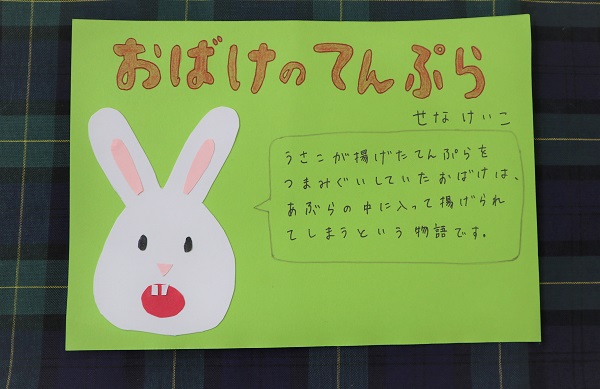 おばけのてんぷら
せなけいこ
うさこが揚げたてんぷらを
つまみぐいしていたおばけは、
あぶらの中に入って揚げられ
てしまうという物語です。